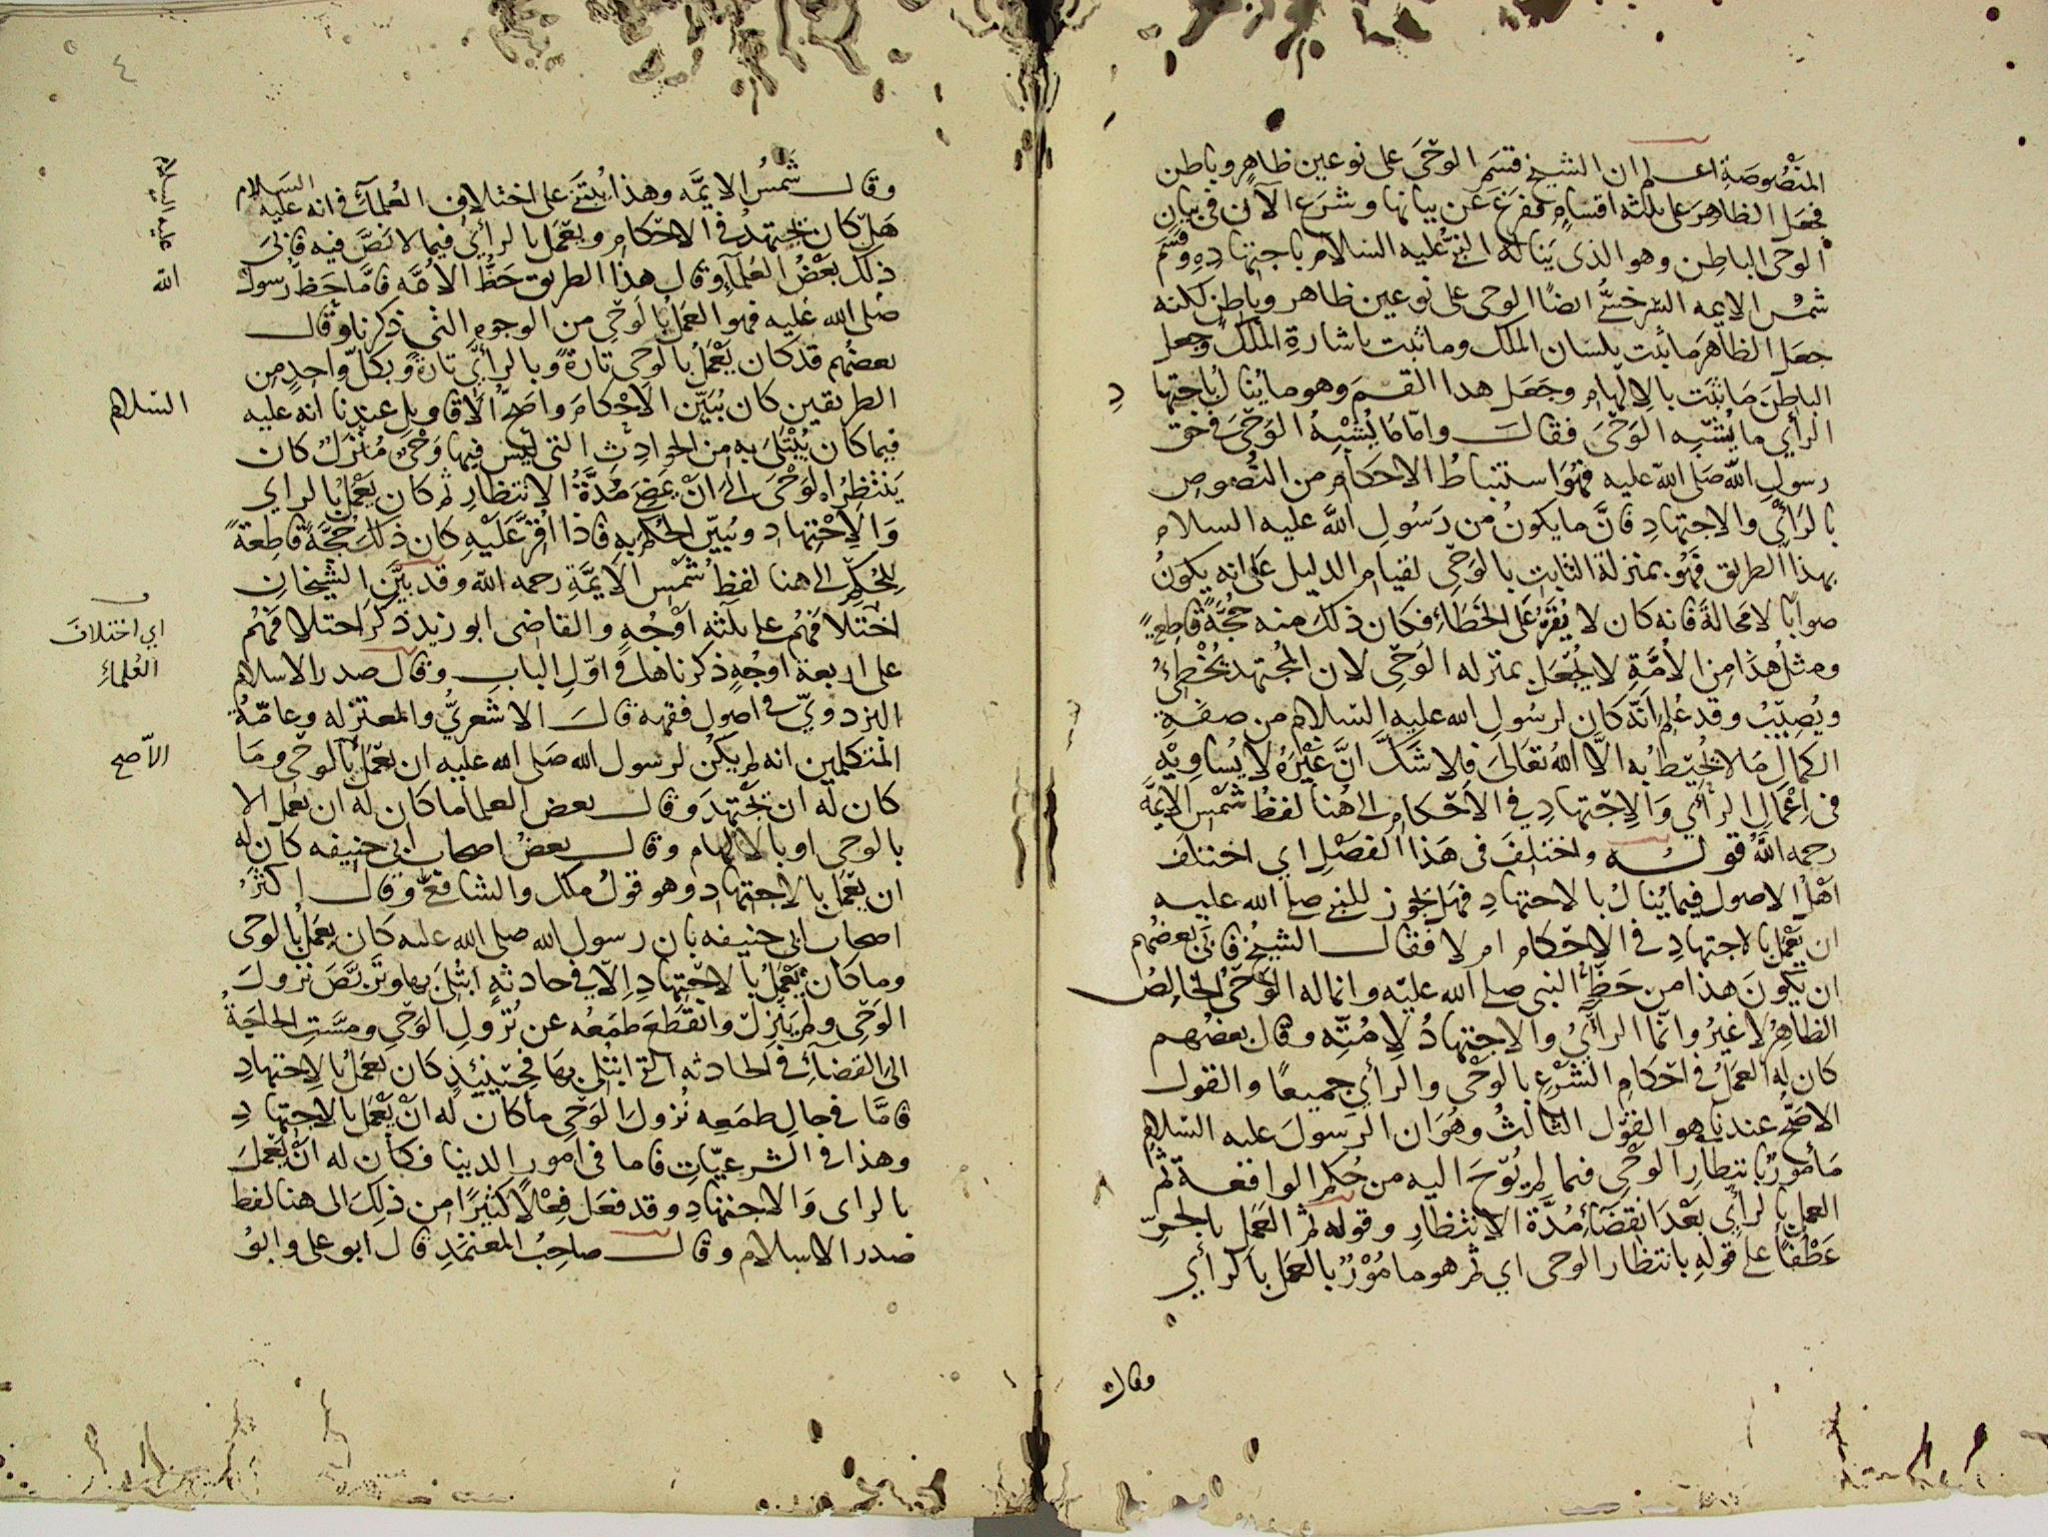 المنصوصة اعلم ان الشيخ قسم الوحي على نوعين ظاهر وباطن
فجعل الظاهر على ثلثه اقسام ففرغ عن بيانها وشرع الآن في بيان
الوحي الباطن وهو الذي يناله النبي عليه السلام باجتهاده وقسم
شمس الايمه السرخسي ايضا الوحي على نوعين ظاهر وباطن لكنه
جعل الظاهر ما ثبت بلسان الملك وما ثبت باشارة الملك وجعل
الباطن ما ثبت بالالهام وجعل هدا القسم وهو ما ينال باجتهاد
الرأي ما يشبه الوحي فقال واما ما يشبه الوحي في حق
رسول الله صلى الله عليه فهو استنباط الاحكام من النصوص
بالرأي والاجتهاد فان ما يكون من رسول الله عليه السلام
بهذا الطريق فهو بمنزلة الثابت بالوحي لقيام الدليل على انه يكون
صوابا لا محالة فانه كان لا يقر على الخطاء فكان ذلك منه حجة قاطعة
ومثل هذا من الأمة لا يجعل بمنزله الوحي لان المجتهد يخطئ
ويصيب وقد علم انه كان لرسول الله عليه السلام من صفة
الكمال ما لا يحيط به الا الله تعالى فلا شك ان غيره لا يساويه
في اعمال الرأي والاجتهاد في الاحكام الى هنا لفظ شمس الايمة
رحمه الله قوله واختلف في هذا الفصل اي اختلف
اهل الاصول فيما ينال بالاجتهاد فهل يجوز للنبي صلى الله عليه
ان يعمل بالاجتهاد في الاحكام ام لا فقال الشيخ فابى بعضهم
ان يكون هذا من حظ النبي صلى الله عليه وانما له الوحي الخالص
الظاهر لا غير وانما الرأي والاجتهاد لامته وقال بعضهم
كان له العمل في احكام الشرع بالوحي والرأي جميعا والقول
الاصح عندنا هو القول الثالث وهو ان الرسول عليه السلام
مأمور بانتظار الوحي فيما لم يوح اليه من حكم الواقعة ثم
العمل بالرأي بعد انقضاء مدة الانتظار وقوله ثم العمل بالجر
عطفا على قوله بانتظار الوحي اي ثم هو مامور بالعمل بالرأي
وقال
٤
وقال شمس الايمه وهذا يبتنى على اختلاف العلماء في انه عليه السلام
هل كان يجتهد في الاحكام ويعمل بالرأي فيما لا نص فيه فابى
ذلك بعض العلماء وقال هذا الطريق حظ الامه فاما حظ رسول الله
صلى الله عليه فهو العمل بالوحي من الوجوه التي ذكرنا وقال
بعضهم قد كان يعمل بالوحي تارة وبالرأي تارة وبكل واحد من
الطريقين كان يبين الاحكام واصح الاقاويل عندنا انه عليه السلام
فيما كان يبتلى به من الحوادث التي ليس فيها وحي منزل كان
ينتظر الوحي الى ان يمضي مدة الانتظار ثم كان يعمل بالراي
والاجتهاد ويبين الحكم به فاذا اقر عليه كان ذلك حجة قاطعة
للحكم الى هنا لفظ شمس الايمة رحمه الله وقد بين الشيخان
اختلافهم على ثلثه اوجه والقاضي ابو زيد ذكر احتلافهم
اي اختلاف
العلماء
على اربعة اوجه ذكرناها في اول الباب وقال صدر الاسلام
البزدوي في اصول فقهه قال الاشعري والمعتزله وعامة
المتكلمين انه لم يكن لرسول الله صلى الله عليه ان يعمل بالوحي وما
الاصح
كان له ان يجتهد وقال بعض العلما ما كان له ان يعمل الا
بالوحي او بالالهام وقال بعض اصحاب ابي حنيفه كان له
ان يعمل بالاجتهاد وهو قول ملك والشافعي وقال اكثر
اصحاب ابي حنيفه بان رسول الله صلى الله عليه كان يعمل بالوحي
وما كان يعمل بالاجتهاد الا في حادثة ابتلي بها وتربص نزول
الوحي ولم ينزل وانقطع طمعه عن نزول الوحي ومست الحاجة
الى القضاء في الحادثه التي ابتلي بها فحينئذ كان يعمل بالاجتهاد
فاما في حال طمعه نزول الوحي ما كان له ان يعمل بالاجتهاد
وهذا في الشرعيات فاما في امور الدينا فكان له ان يعمل
بالراي والاجتهاد وقد فعل فعلا كثيرا من ذلك الى هنا لفظ
صدر الاسلام وقال صاحب المعتمد قال ابو علي وابو